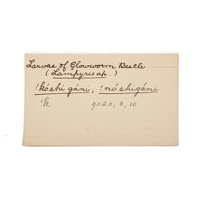 Larvae of Glowworm Beetle
(Lampyris sp.)
!kóshi gáni, !nóshigáni
!k 9020, 8, 10